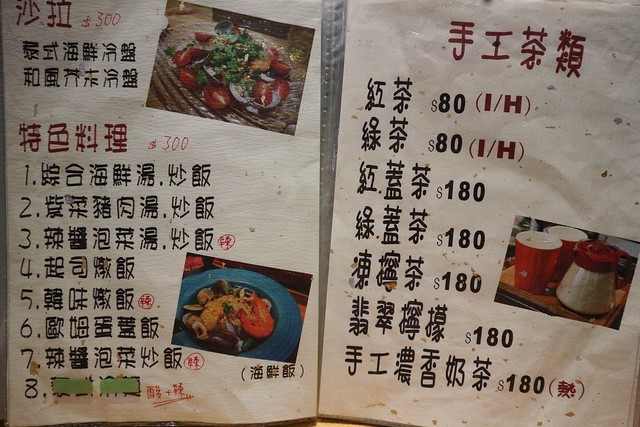 沙拉 $300
泰式海鮮冷盤
和風芥末冷盤
特色料理 $300
1.綜合海鮮湯.炒飯
2.紫菜豬肉湯.炒飯
3.辣醬泡菜湯.炒飯 辣
4.起司燉飯
5.韓味燉飯 辣
6.歐姆蛋蓋飯
7.辣醬泡菜炒飯 辣
(海鮮飯)
8. 酸+辣
手工茶類
紅茶 $80 (I/H)
綠茶 $80 (I/H)
紅.蓋茶 $180
綠.蓋茶 $180
凍檸茶 $180
翡翠檸檬 $180
手工濃香奶茶 $180(熱)